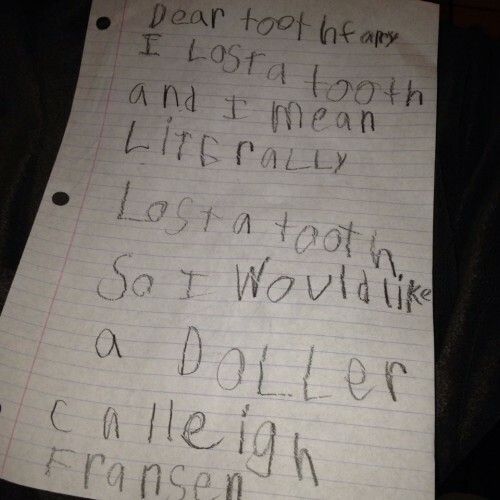 Dear toothfary
I Lost a tooth
and I mean
Literally
Lost a tooth
So I would like
a Doller
Calleigh
Fransen